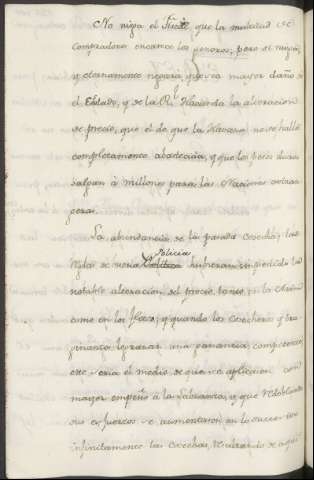 No niega el Fiscal que la multitud de
Compradores encarece los generos; pero si niega,
y eternamente negará que sea mayor daño
el Estado, y de la Rl Hacienda la alteracion
de precio, que el de que la Havana no se halle
completamente abastecida, y que los pesos duros
salgan à millones para las Naciones extran
geras.
La abundancia de la pasada Cosecha, las
reglas de buena Policia hubieran impedido la
notable alteracion del precio, tanto en la Harina
como en los y quando los Cosecheros y tra
ginantes lograran una ganancia,
ese seria el medio de que se aplicasen con
mayor empeño à la Labranza, y que redoblando
sus esfuerzos se aumentaran en lo sucesivo
infinitamente las Cosechas, resultando de aqui